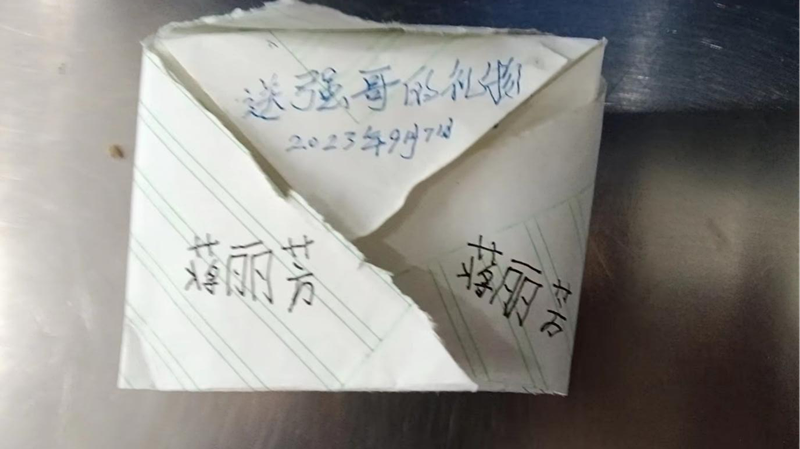 送强哥的礼物
2023年9月7日
蒋丽芳
蒋丽芳